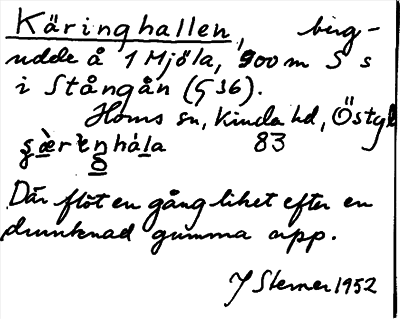 Käringhallen, berg-
udde å 1 Mjöla, 900 m S s
i Stångån (§ 36).
Horns sn, Kinda hd, Östgl
83
Där flöt en gång liket efter en
drunknad gumma upp.
J Sterner 1952